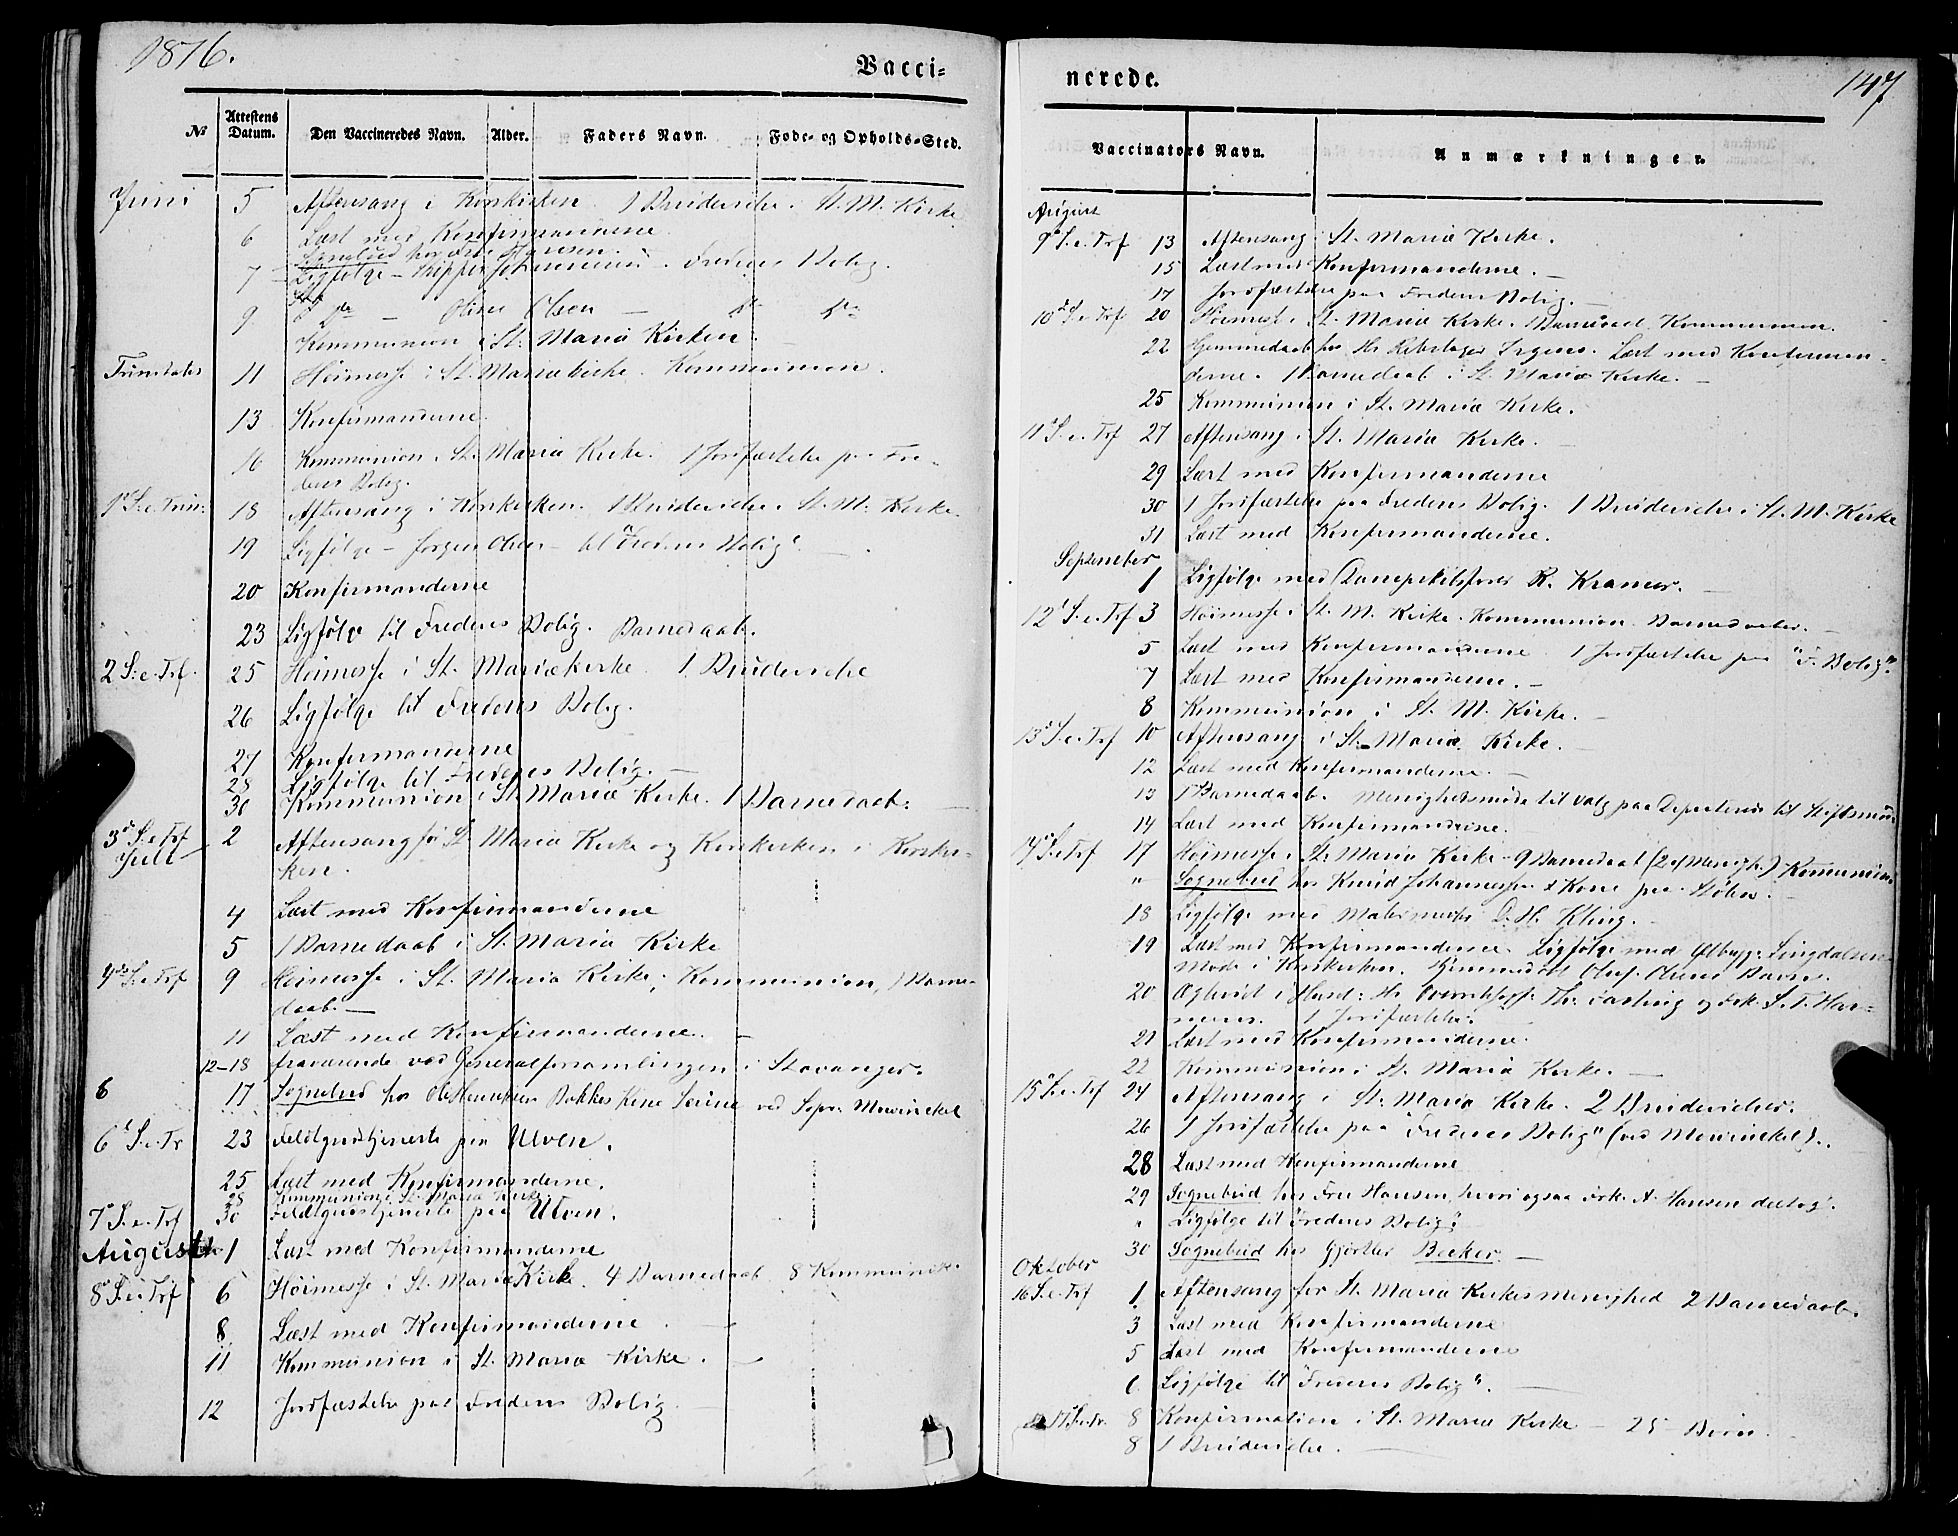 1876.
Vacci-
№ Attestens Datum. Den Vaccineredes Navn. Alder. Faders Navn. Føde- og Opholds-Sted.
Juni 5 Aftensang i Korskirken. 1 Brudevielse i St. M. Kirke
6 Læst med Konfirmanderne.
Sognebud hos Hansen.
7 Ligfølge - Fredens Bolig.
9 do - Oline Olsen - do do
Kommunion i St. Mariæ Kirken. -
11 Høimesse i St. Mariæ kirke. Kommunion.
13 Konfirmanderne.
16 Kommunion i St. Mariæ Kirke. 1 Jordfæstelse paa Fre-
dens Bolig.
1 S. e. Trin: 18 Aftensang i Korskirken. 1 Brudevielse i St. M. Kirke.
19 Ligfølge - Jørgen Olsen - til "Fredens Bolig".
20 Konfirmanderne
23 Ligfølge til Fredens Bolig. Barnedaab.
2 S. e. Trf. 25 Høimesse i St. Mariækirke 1 Brudevielse
26 Ligfølge til Fredens Bolig.
27 Konfirmanderne
28 Ligfølge til Fredens Bolig. -
30 Kommunion i St. Mariæ Kirke. 1 Barnedaab. -
3 S. e. Trf 2 Aftensang for St. Mariæ Kirke og Korskirken i Korskir-
Juli
ken.
4 Læst med Konfirmanderne
5 1 Barnedaab i St. Mariæ Kirke
4 S. e. Trf 9 Høimesse i St. Mariæ Kirke, Kommunion, 1 Barne-
daab. -
11 Læst med Konfirmanderne. -
12-18 fraværende ved Generalforsamlingen i Stavanger.
6 17 Sognebud hos Ole Henriksen Bakkes Kone Serine ved Sogn: Mowinckel
6 S. e. Tr 23 Feldtgudstjeneste paa Ulven.
25 Læst med Konfirmanderne.
28 Kommunion i St. Mariæ Kirke.
7 S. e. Trf 30 Feldtgudstjeneste paa Ulven.
August 1 Læst med Konfirmanderne
8 S. e. Trf 6 Høimesse i St. Mariæ Kirke. 4 Barnedaab. 8
8 Læst med Konfirmanderne. -
11 Kommunion i St. Mariæ Kirke. -
12 Jordfæstelse paa Fredens Bolig. -
nerede. 147
Vaccinators Navn. Anmærkninger.
August
9 S. e. Trf 13 Aftensang i St. Mariæ Kirke.
15 Læst med Konfirmanderne. -
17 Jordfæstelse paa Fredens Bolig. -
10 S. e. Trf. 20 Høimesse i St. Mariæ Kirke. Kommunion.
22 Hjemmedaab hos Hr. Rebslager Irgens. Læst med Konfirman-
derne. 1 Barnedaab i St. Mariæ Kirke. -
25 Kommunion i St. Mariæ Kirke.
11 S. e. Trf 27 Aftensang i St. Mariæ Kirke. -
29 Læst med Konfirmanderne
30 1 Jordfæstelse paa Fredens Bolig. 1 Brudevielse i St. M. Kirke
31 Læst med Konfirmanderne.
September
1 Ligfølge med R. Kramer. -
12 S. e. Trf 3 Høimesse i St. M. Kirke. Kommunion. Barnedaab. -
5 Læst med Konfirmanderne. 1 Jordfæstelse paa "F. Bolig".
7 Læst med Konfirmanderne. -
8 Kommunion i St. M. Kirke. -
13 S. e. Trf 10 Aftensang i St. Mariæ Kirke. -
12 Læst med Konfirmanderne. -
13 1 Barnedaab. Menighedsmøde til Valg paa Deputerede til Stiftsmøde
14 Læst med Konfirmanderne.
14 S. e. Trf 17 Høimesse i St. Mariæ Kirke - 9 Barnedaab (2 af Menigh.) Kommunion
" Sognebud hos Knud Johannessen & Kone paa Stølen. -
18 Ligfølge med D. H. Kling. -
19 Læst med Konfirmanderne. Ligfølge med Lingdalsen
Møde i Korskirken. Hjemmedøbt
20 Ægteviet i Huset: Hr. og Frk. S. T. Har-
mens. 1 Jordfæstelse.
21 Læst med Konfirmanderne.
22 Kommunion i St. Mariæ Kirke. -
15 S. e. Trf 24 Aftensang i St. Mariæ Kirke. 2 Brudevielser.
26 1 Jordfæstelse paa "Fredens Bolig" (ved Mowinckel).
28 Læst med Konfirmanderne
29 Sognebud hos Fru Hansen, hvori ogsaa Frk. A. Hansen deltog.
" Ligfølge til "Fredens Bolig".
30 Sognebud hos Gjørtler Becker. -
Oktober
16 S. e. Trf 1 Aftensang for St. Mariæ Kirkes menighed 2 Barnedaab.
3 Læst med Konfirmanderne
5 Læst med Konfirmanderne
6 Ligfølge til "Fredens Bolig". -
17 S. e. Tr. 8 Konfirmation i St. Mariæ Kirke - 25 Børn.
8 1 Brudevielse. -